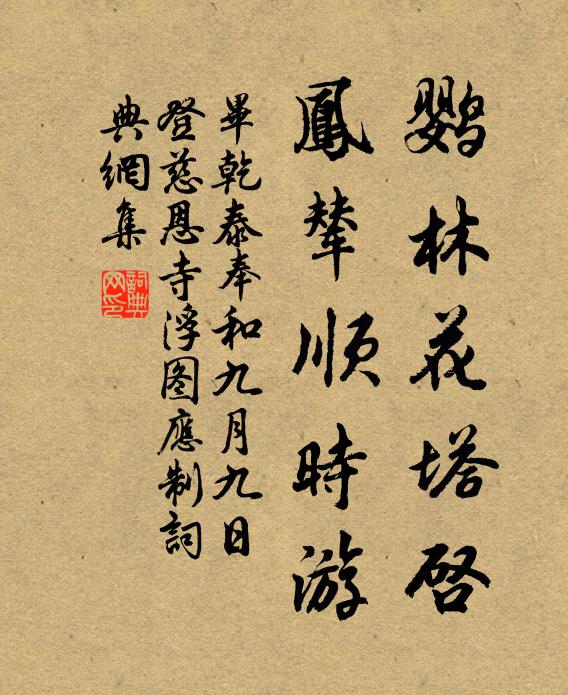 鹦林花塔啓
鳳輦順時游
畢乾泰奉和九月九日
登慈恩寺浮图應制詞
典網集
詞典网印